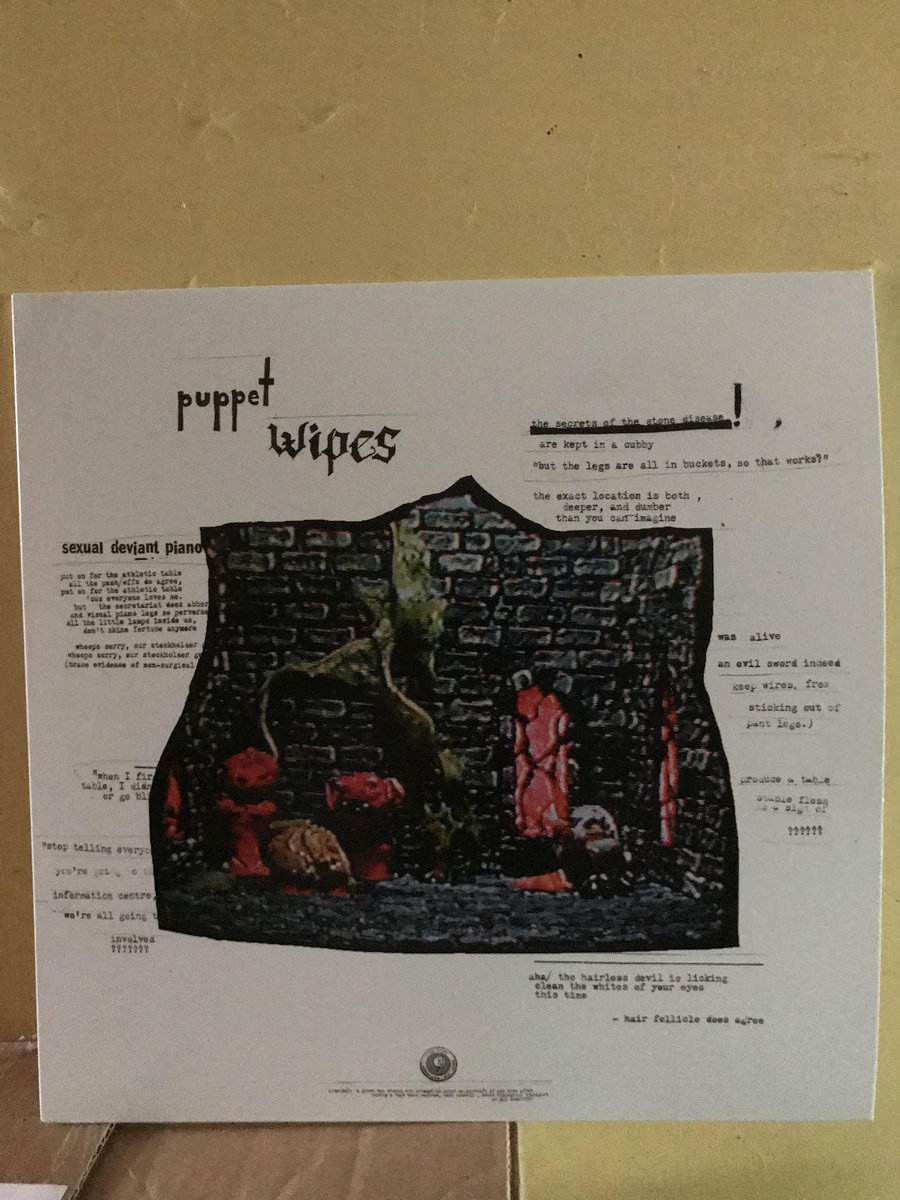 puppet
wipes
the secrets of the stone disease!
are kept in a cubby
"but the legs are all in buckets, so that works?"
the exact location is both ,
deeper, and dumber
than you can imagine
sexual deviant piano
put on for the athletic table
all the push/offs do agree,
put on for the athletic table
'cus everyone loves me.
but the secretariat does abhor
and visual piano legs so perverse
all the little lamps inside us,
don't shine fortune anymore
wheeps sorry, our stockholser
wheeps sorry, our stockholser
(trace evidence of non-surgical
was alive
an evil sword indeed
keep wires, from
sticking out of
pant legs.)
"when I fir
table, I didn
or go bli
produce a table
stable flesh
as a sign of
??????
"stop telling everyo
you're going to
information centre,
we're all going t
involved
???????
aha/ the hairless devil is licking
clean the whites of your eyes
this time
- hair follicle does agree